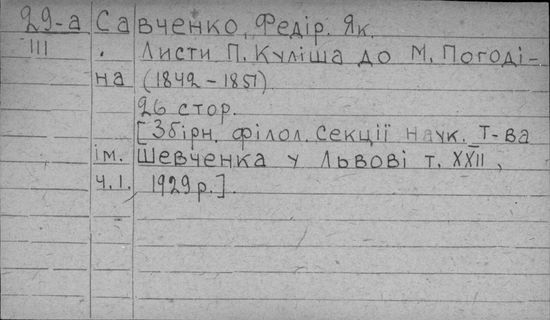 29-а Савченко, Федір. Як.
III . Листи П. Куліша до М. Погоді-
на (1842-1851)
26 стор.
[Збірн. філол. Секції наук. Т-ва
ім. Шевченка у Львові т. XXII,
ч. I. 1929 р.].